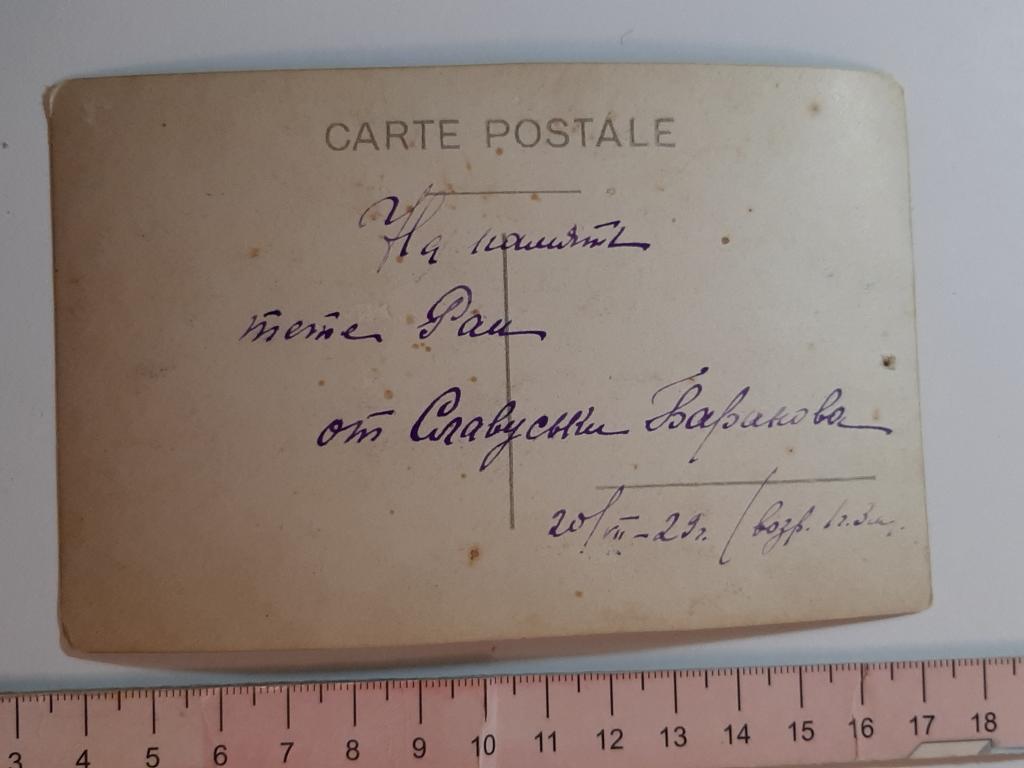 CARTE POSTALE
На память
тете Раи
от Славуськи Баранова
20/II-29г. (возр. 1г.3м.
3 4 5 6 7 8 9 10 11 12 13 14 15 16 17 18